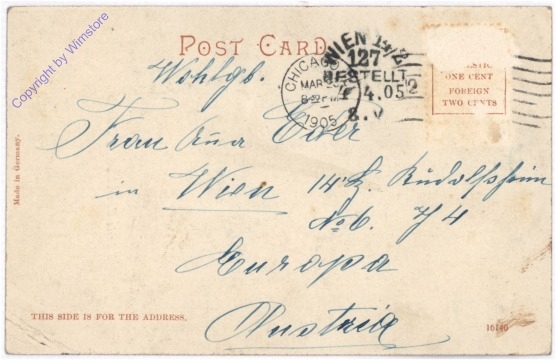 shop ansichtskarten by Wimstore
POST CARD
CHICAGO
MAR 2
8 PM
1905
WIEN 14/2
127
BESTELLT
4.05
8.
2
STIC
ONE CENT
FOREIGN
TWO CENTS
Wohlgb.
Frau
in Wien 14/2 Rudolfsheim
No 6. 4
Europa
Austria
Made in Germany.
THIS SIDE IS FOR THE ADDRESS.